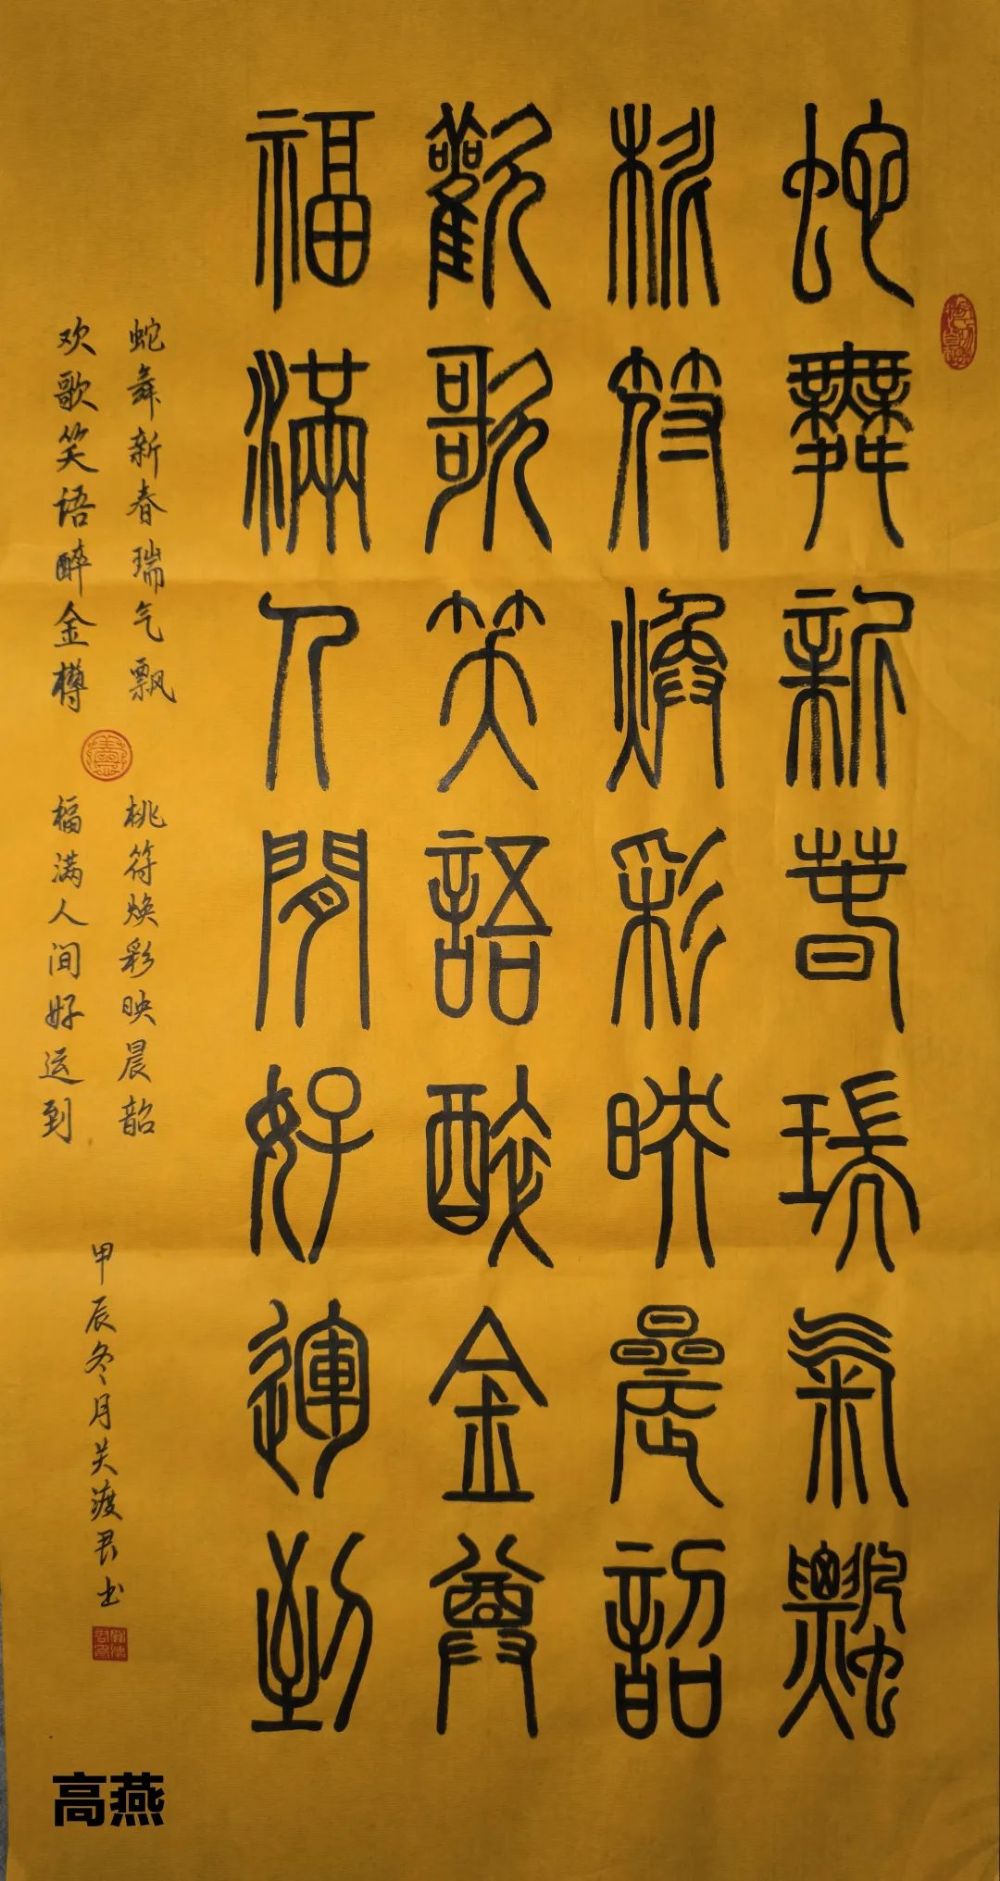 蛇舞新春瑞气飘
桃符焕彩映晨韶
歡歌笑語醉金尊
福滿人間好運到
蛇舞新春瑞气飘
桃符焕彩映晨韶
欢歌笑语醉金樽
福满人间好运到
甲辰冬月关渡君书
高燕